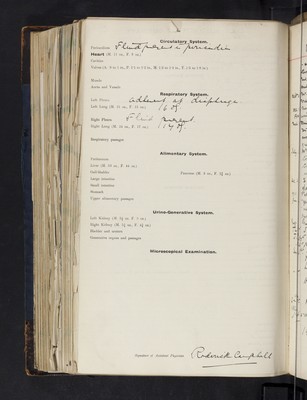 Circulatory System.
Pericardium Fluid present in pericardium
Heart (M. 11 oz., F. 9 oz.)
Cavities
Muscle
Aorta and Vessels
Respiratory System.
Left Pleura adherent at diaphragm.
Left Lung 16 oz.
Right Pleura Fluid present.
Right Lung 19 oz.
Respiratory passages
Alimentary System.
Peritoneum
Liver
Gall-bladder
Large intestine
Small intestine
Stomach
Upper alimentary passages
Urino-Generative System.
Left Kidney
Right Kidney
Bladder and ureters
Generative organs and passages
Microscopical Examination.
Signature of Assistant Physician Roderick Campbell